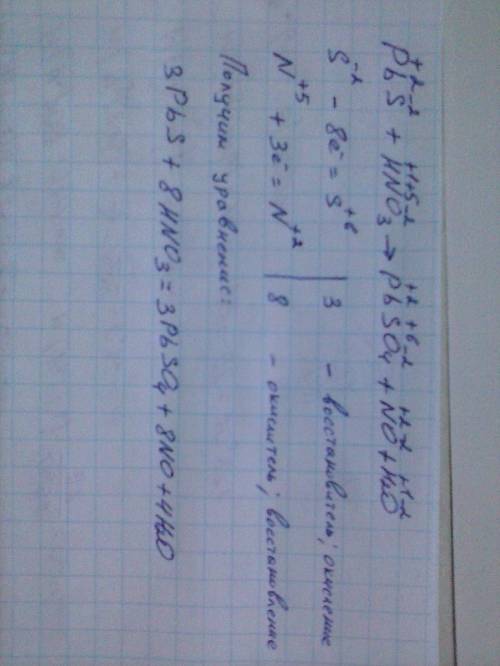 +2 -2 +1+5-2 +2 +6-2 +2-2 +1-2
PbS + HNO₃ → PbSO₄ + NO + H₂O
S⁻² - 8ē = S⁺⁶ | 3 - восстановитель; окисление
N⁺⁵ + 3ē = N⁺² | 8 - окислитель; восстановление
Получим уравнение:
3PbS + 8HNO₃ = 3PbSO₄ + 8NO + 4H₂O